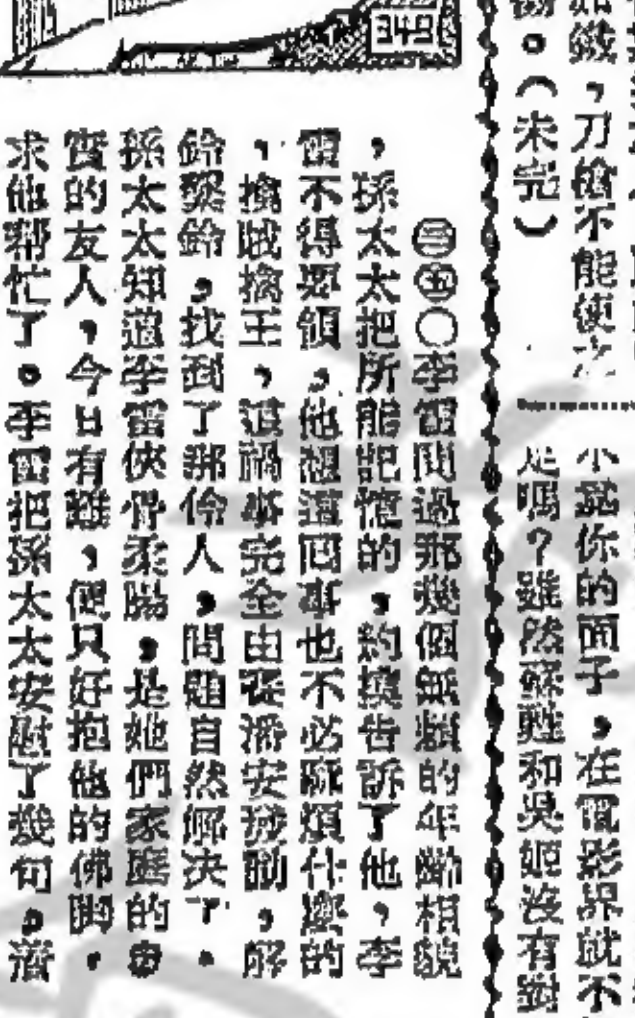 349
㊂㊄〇李雷問過那幾個無賴的年齡相貌
，孫太太把所能記憶的，約摸告訴了他，李
雷不得要領，他想這回事也不必麻煩什麼的
，擒賊擒王，這禍事完全由張潘安挽創，解
鈴繫鈴，找到了那伶人，問題自然解决了。
孫太太知道李雷俠骨柔腸，是她們家庭的忠
實的友人，今日有難，便只好抱他的佛脚，
求他幫忙了。李雷把孫太太安慰了幾句。
如鐵，刀槍不能使之
。（未完）
小說你的面子，在電影界就不
是嗎？雖然蘇和吳姬沒有對